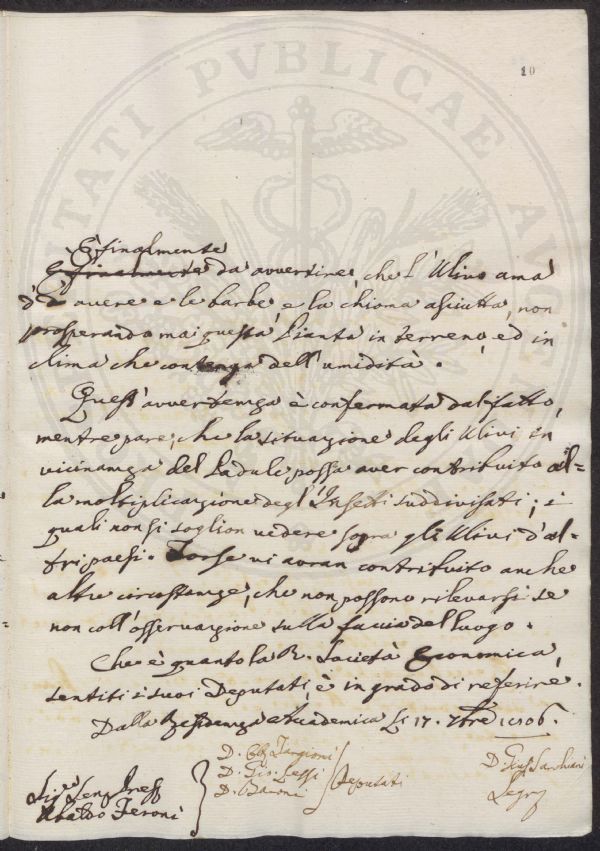 10
È finalmente
È finalmente da avvertire, che l'Ulivo ama
d'avere e le barbe, e la chioma asciutta, non
prosperando mai questa Pianta in terreno, ed in
clima che contenga dell'umidità.
Quest'avvertenza è confermata dal fatto,
mentre pare, che la situazione degli Ulivi in
vicinanza del Padule possa aver contribuito al=
la moltiplicazione degl'Insetti suddivisati; i
quali non si soglion vedere sopra gli Ulivi d'al=
tri paesi. Forse vi avran contribuito anche
altre circostanze, che non possono rilevarsi se
non coll'osservazione sulla faccia del luogo.
Che è quanto la R. Società Economica,
sentiti i suoi Deputati è in grado di referire.
Dalla Residenza Accademica li 17. 7bre 1806.
D. Targioni
D. Gio. Lessi
D. Baroni
Deputati
Ubaldo Feroni
D. Gius. Sarchiani
Segr
PUBLICAE